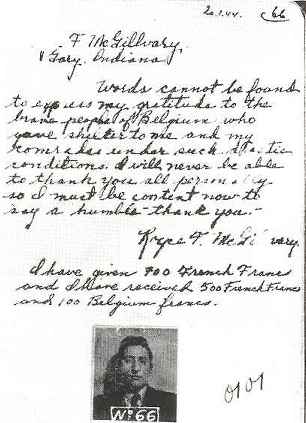 20.1.44. C66
F McGillvary,
Gary, Indiana
Words cannot be found
to express my gratitude to the
brave people of Belgium who
gave shelter to me and my
comrades under such
conditions. I will never be able
to thank you all personally
so I must be content now to
say a humble "thank you."
F. McGillvary.
I have given 700 French Francs
and I have received 500 French Francs
and 100 Belgium francs.
Nº66
0101